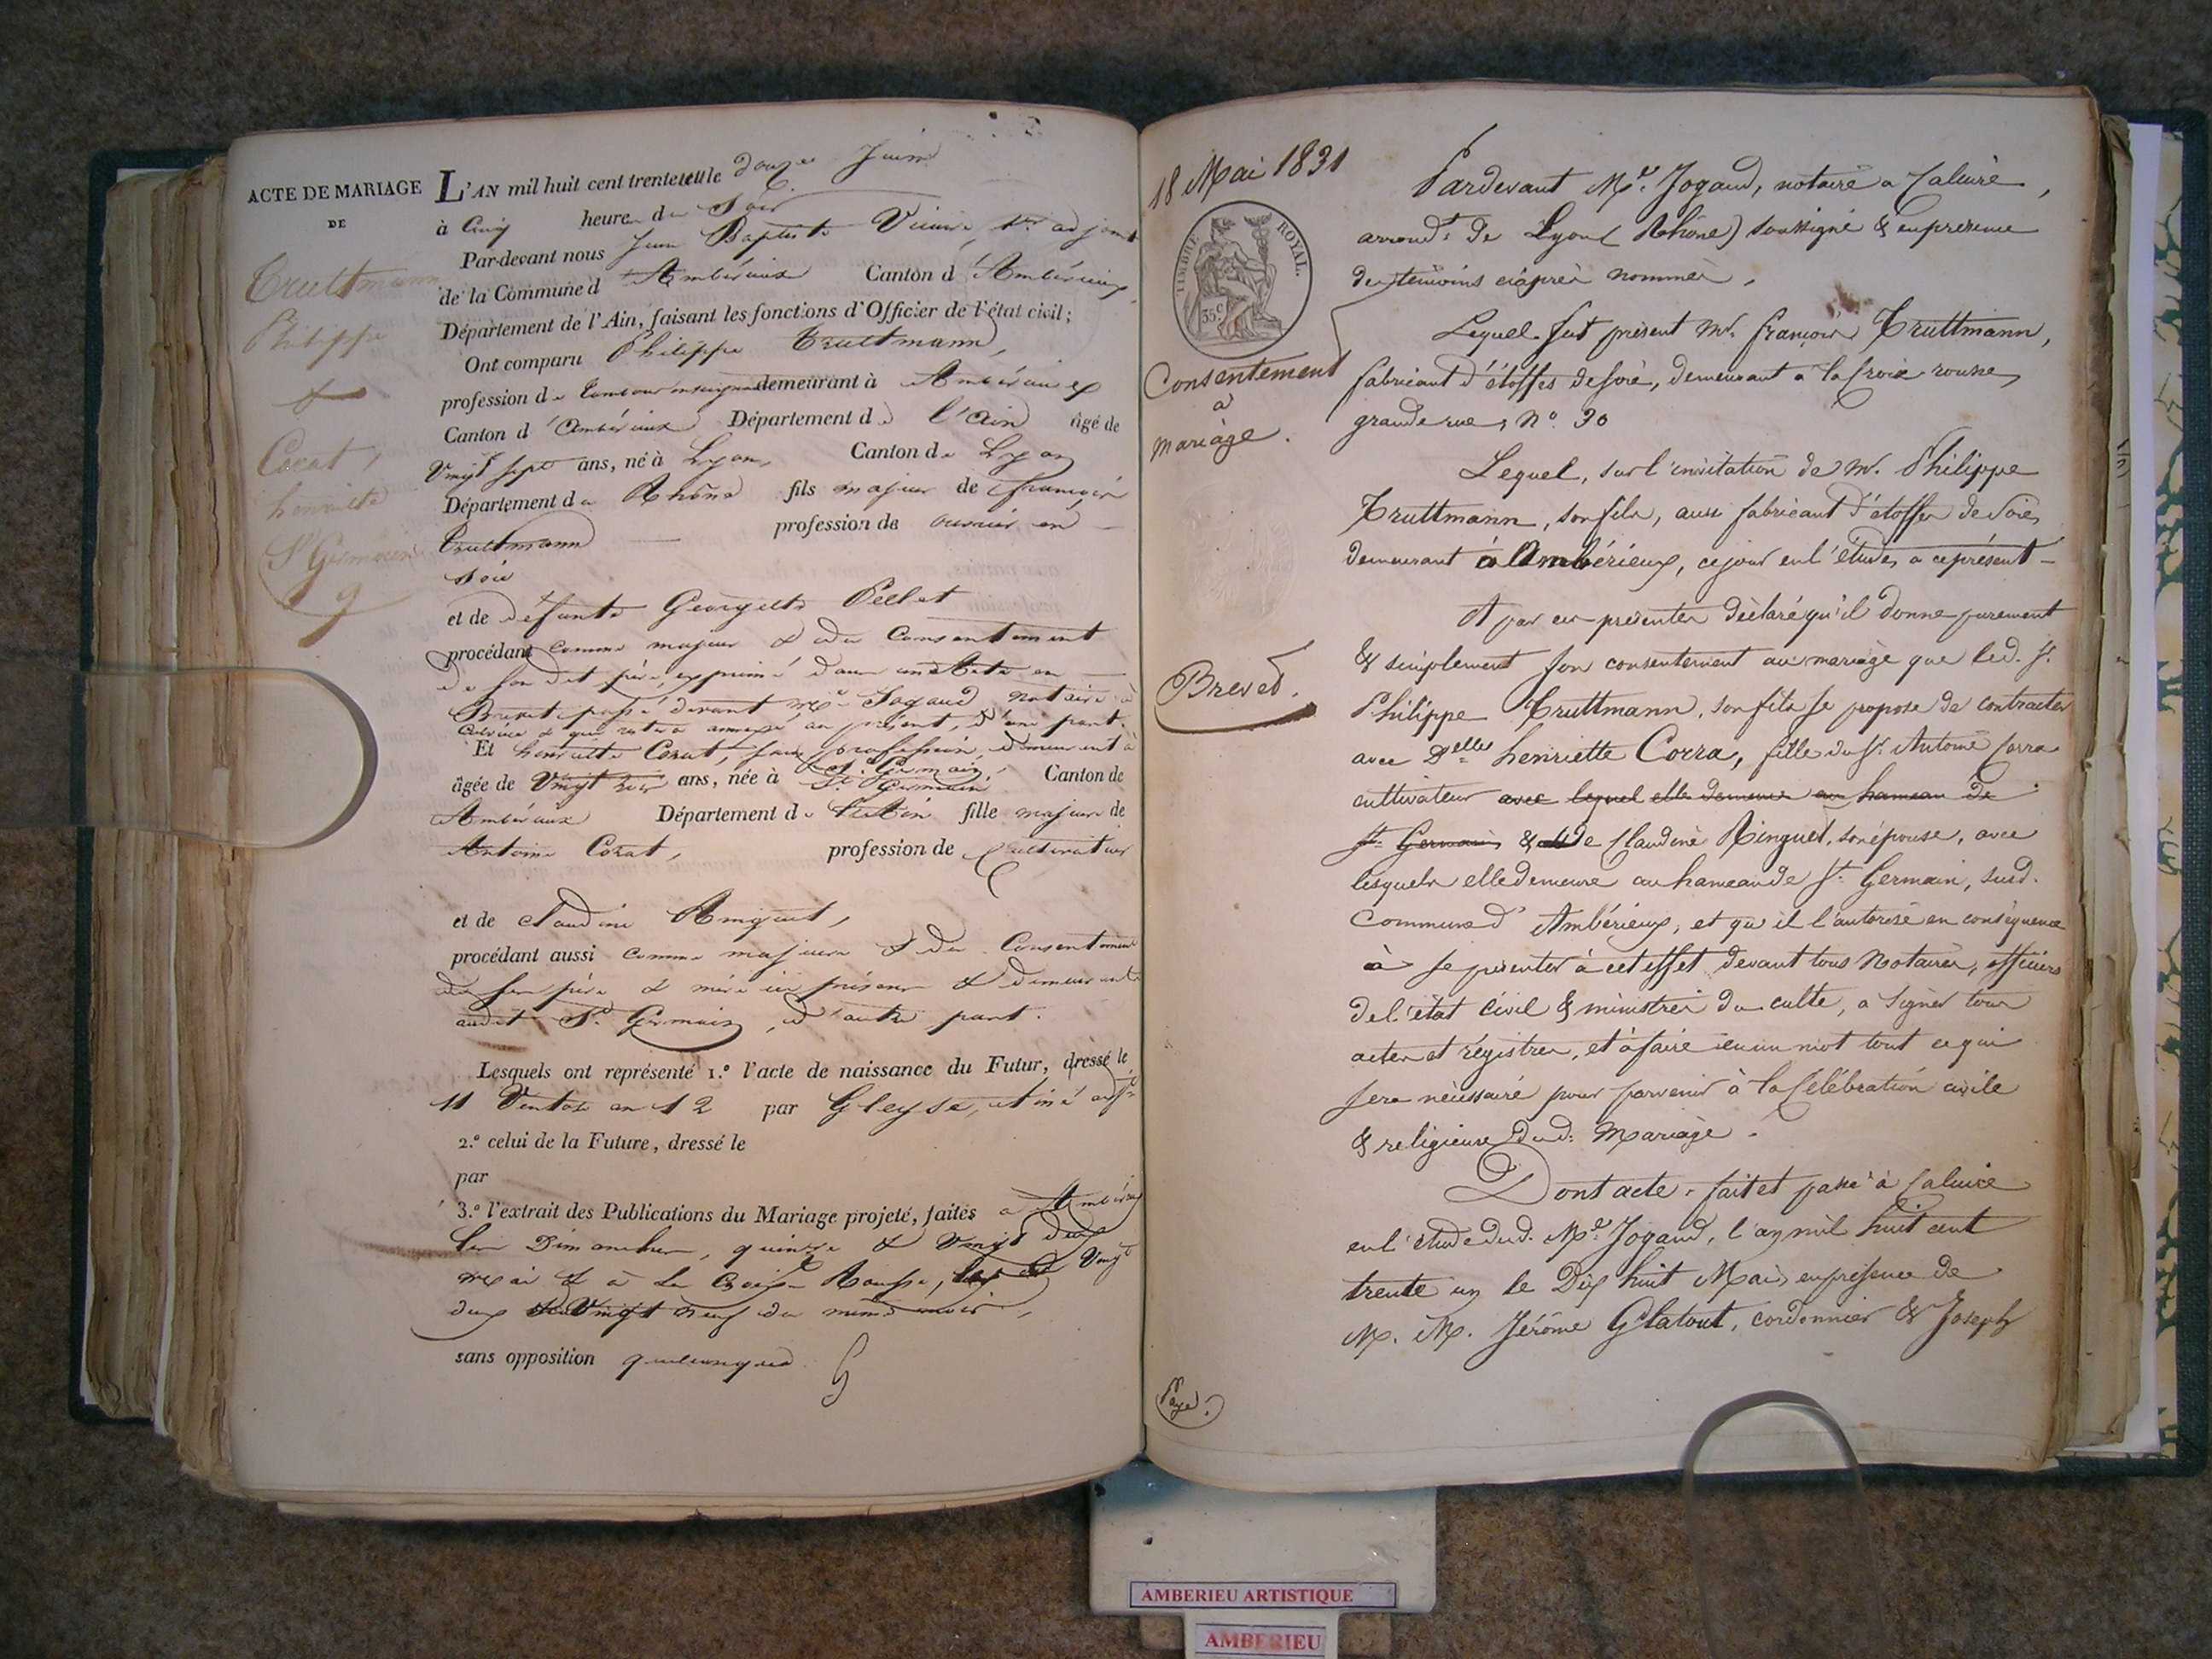 ACTE DE MARIAGE
DE
Truttmann
Philippe
&
Corat,
henriette
St Germain
9
L'AN mil huit cent trente et un le douze Juin
à Cinq heures du Soir
Par-devant nous Jean Baptiste adjoint
de la Commune d'Ambérieux Canton d'Ambérieux,
Département de l'Ain, faisant les fonctions d'Officier de l'état civil;
Ont comparu Philippe Truttmann,
profession de demeurant à Ambérieux
Canton d'Ambérieux Département de l'Ain âgé de
Vingt sept ans, né à Lyon, Canton de Lyon
Département du Rhône fils majeur de françois
Truttmann profession de ouvrier en
soie
et de défunte Georgette Pellet
procédant comme majeur & du Consentement
de son dit père, exprimé dans un acte en
Brevet passé devant Me Jogand notaire à
Caluire & qui restera annexé au présent, d'une part.
Et henriette Corat, sans profession, demeurant à
St Germain,
âgée de Vingt ans, née à St Germain Canton de
Ambérieux Département de l'Ain fille majeure de
Antoine Corat, profession de Cultivateur
et de Claudine Ringuet,
procédant aussi comme majeure & du Consentement
de ses père & mère ici présens & demeurants
audit St Germain, d'autre part.
Lesquels ont représenté 1.º l'acte de naissance du Futur, dressé le
11 Ventose an 12 par Gleyse,
2.º celui de la Future, dressé le
par
3.º l'extrait des Publications du Mariage projeté, faites a Ambérieux
les Dimanches, quinze & Vingt deux
mai & à la Croix Rousse, Vingt
deux & Vingt neuf du même mois,
sans opposition quelconque.
18 Mai 1831
TIMBRE ROYAL.
35 c
Consentement
à
mariage.
Brevet.
Pardevant Me. Jogand, notaire a Caluire,
arrondt. de Lyon (Rhône) soussigné & en presence
des témoins ciaprès nommés,
Lequel fut présent Mr. françois Truttmann,
fabricant d'étoffes de soie, demeurant a la Croix rousse,
grande rue, No. 30
Lequel, sur l'invitation de Mr. Philippe
Truttmann, son fils, aussi fabricant d'étoffes de Soie,
demeurant à Ambérieux, ce jour en l'étude, a ce présent
A par ces présentes déclaré qu'il donne purement
& simplement son consentement au mariage que led. Sr.
Philippe Truttmann, son fils se propose de contracter
avec Delle henriette Corra, fille du Sr. Antoine Corra
cultivateur avec lequel elle demeure au hameau de
St. Germain & de Claudine Ringuet, son épouse, avec
lesquels elle demeure au hameau de St. Germain, susd.
commune d'Ambérieux, et qu'il l'autorise en conséquence
à se présenter à cet effet devant tous Notaires, officiers
de l'état civil & ministres du culte, a signer tous
actes et régistres, et à faire en un mot tout ce qui
sera nécessaire pour parvenir à la Célébration civile
& religieuse dud. Mariage.
Dont acte, fait et passé à Caluire
en l'étude dud. Me. Jogand, l'an mil huit cent
trente un le Dix huit Mai, en présence de
M. M. Jérôme Glatout, cordonnier & Joseph
AMBERIEU ARTISTIQUE
AMBERIEU